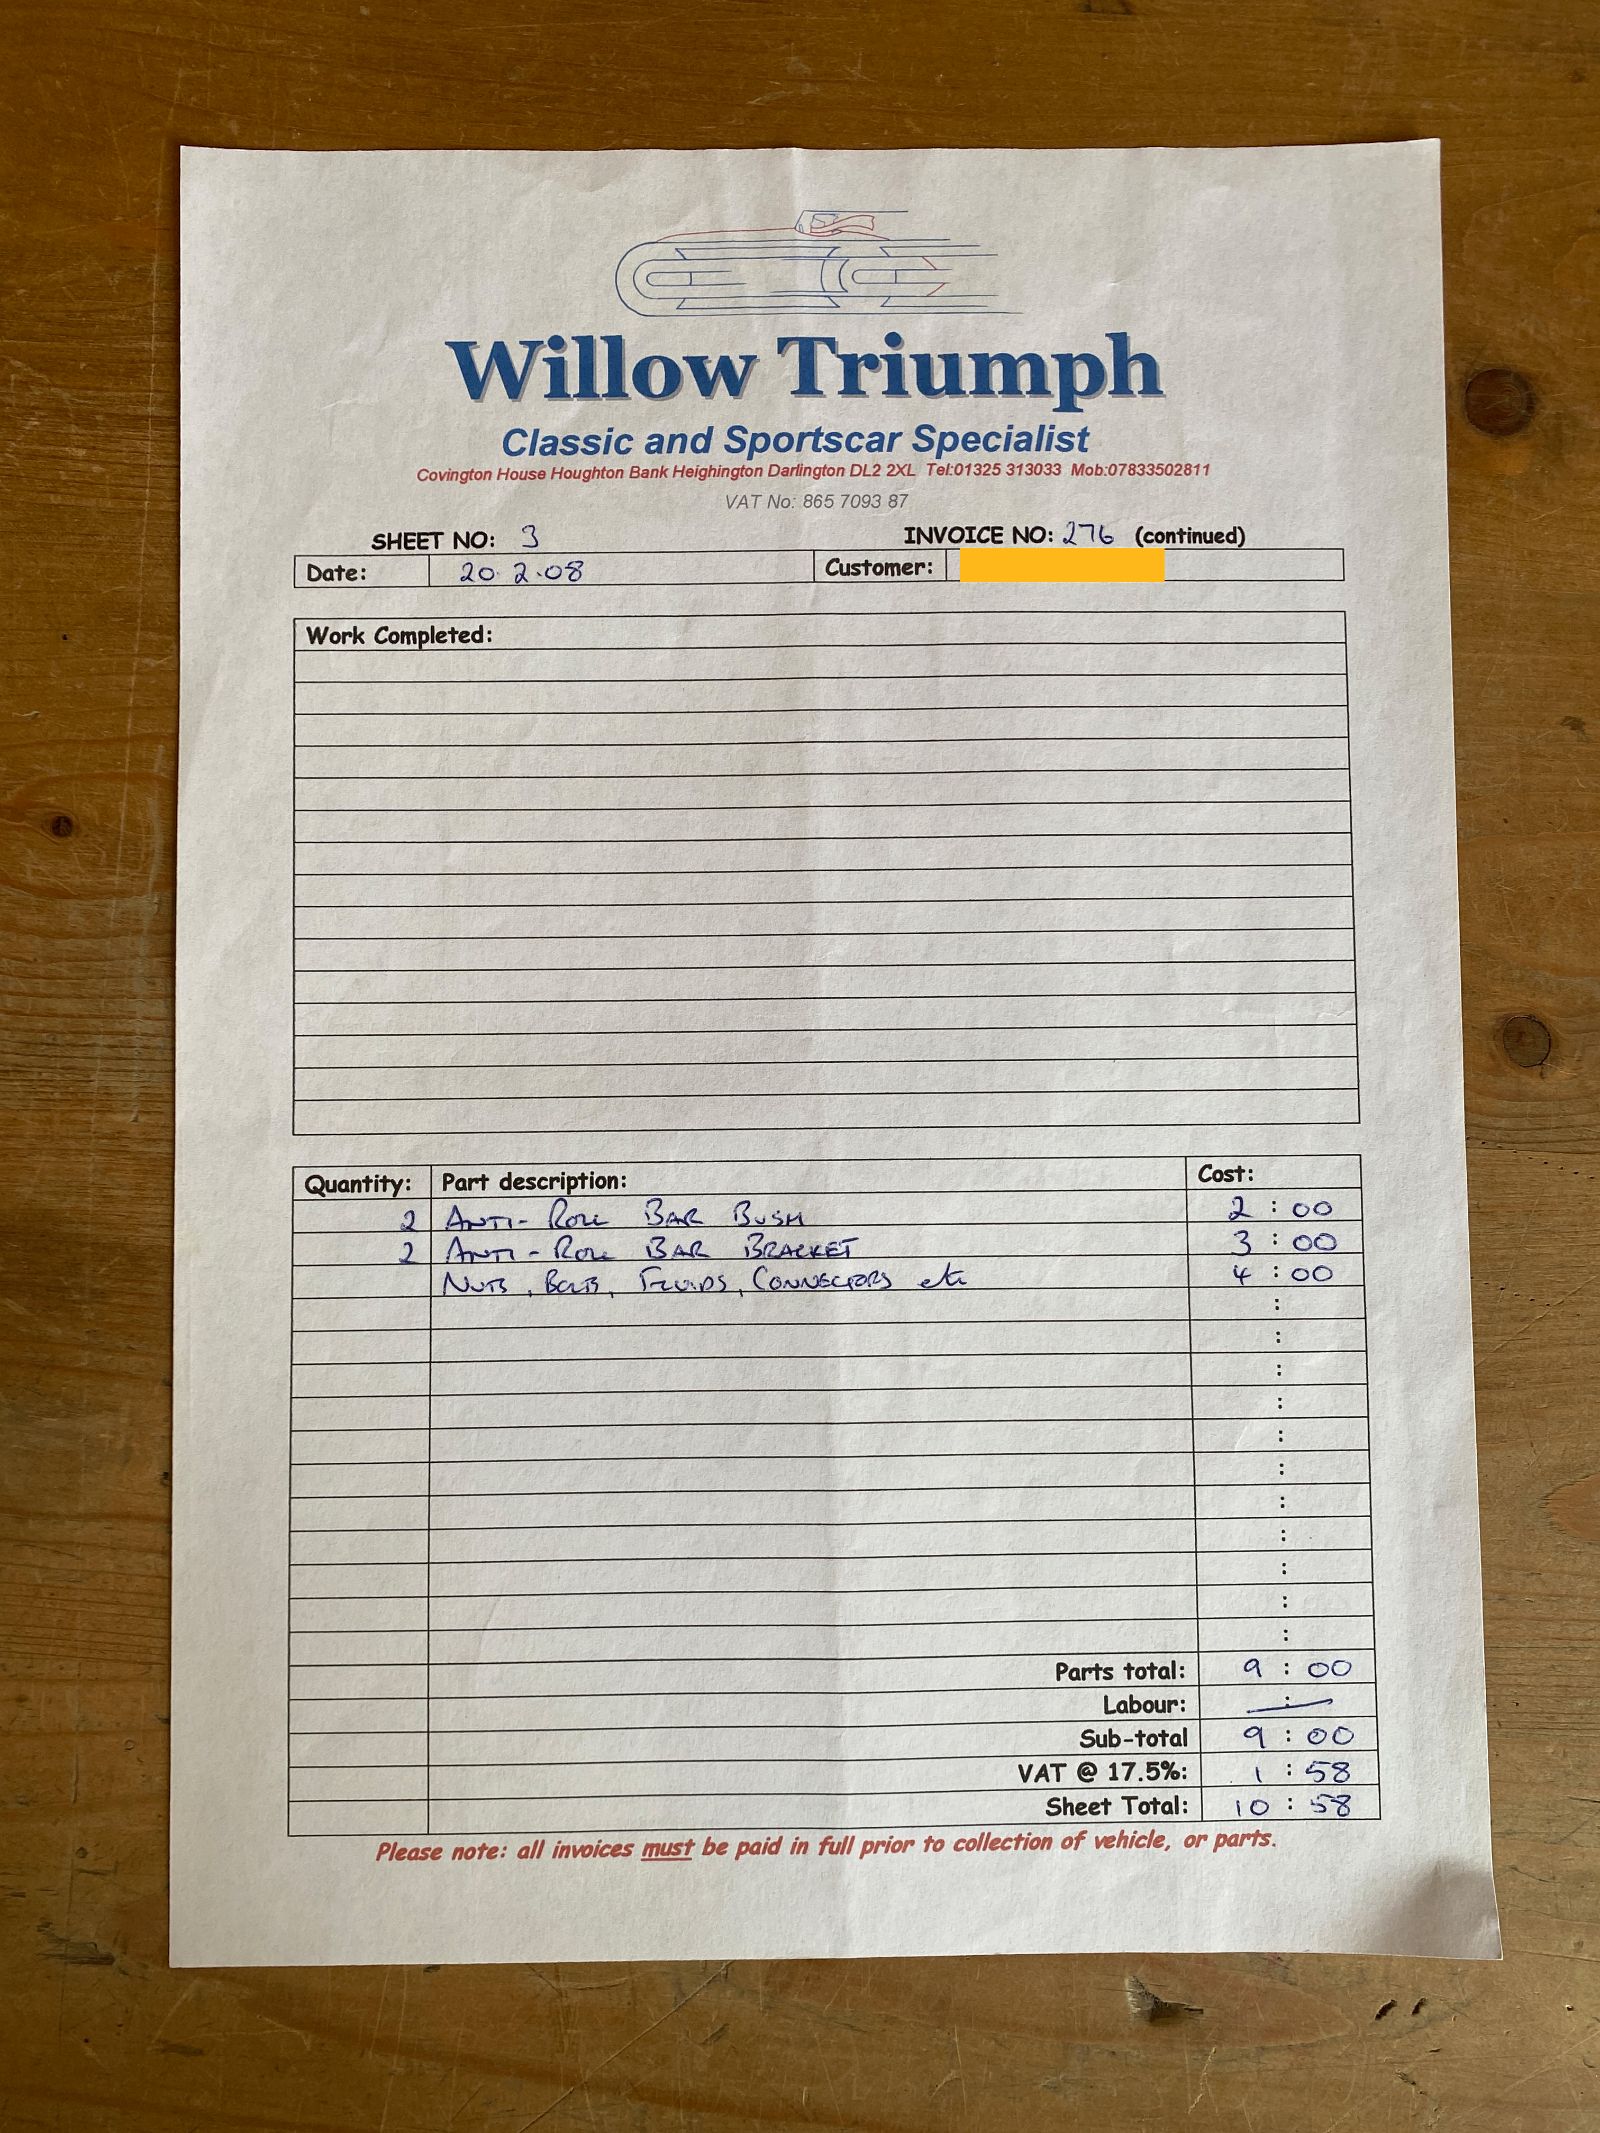 Willow Triumph
Classic and Sportscar Specialist
Covington House Houghton Bank Heighington Darlington DL2 2XL Tel:01325 313033 Mob:07833502811
VAT No: 865 7093 87
SHEET NO: 3 INVOICE NO: 276 (continued)
Date: 20.2.08 Customer:
Work Completed:
Quantity: Part description: Cost:
2 ANTI-ROLL BAR BUSH 2 : 00
2 ANTI-ROLL BAR BRACKET 3 : 00
NUTS, BOLTS, FLUIDS, CONNECTORS etc 4 : 00
:
:
:
:
:
:
:
:
:
:
:
Parts total: 9 : 00
Labour: — : —
Sub-total 9 : 00
VAT @ 17.5%: 1 : 58
Sheet Total: 10 : 58
Please note: all invoices must be paid in full prior to collection of vehicle, or parts.